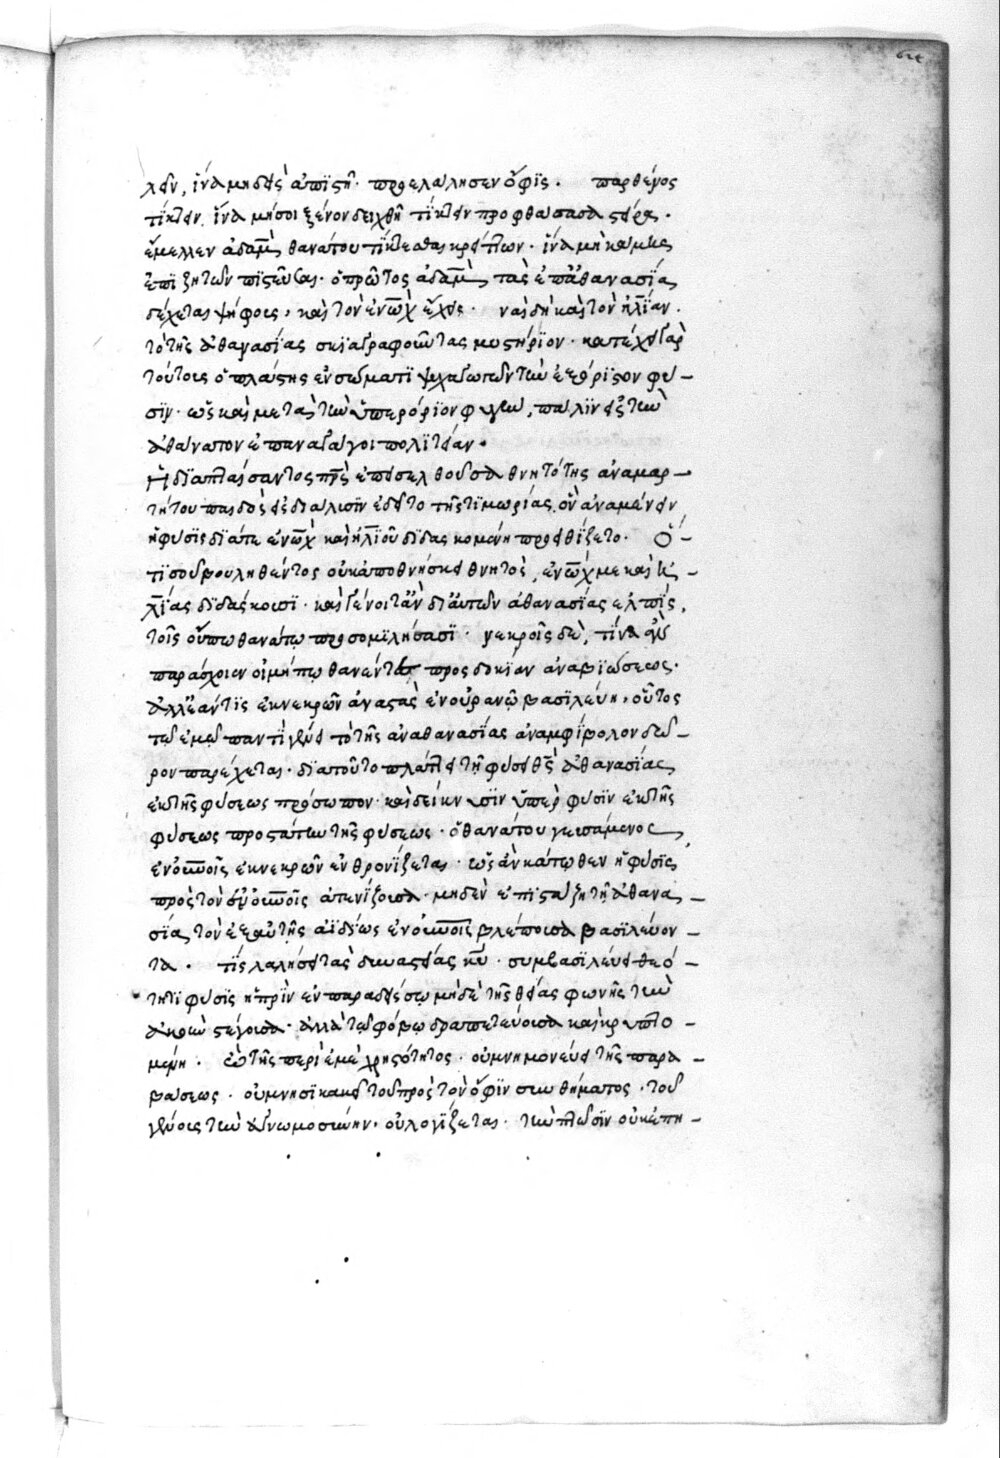 λεῖν, ἵνα μηδεὶς ἀπιστῆ· προσελάλησεν ὄφις. παρθένος
τίκτειν. ἵνα μήσοι ξένον δειχθῆ τίκτειν προφθάσασα στεῖρα·
ἔμελλεν ἀδὰμ θανάτου κρείττων· ἵνα μὴ καμὲ
ἐπιζητῶν πιστεῦσαι· ὁ πρῶτος ἀδὰμ τὰς ἐπ' ἀθανασία
δέχεται ψήφους, καὶ τὸν ἐνὼχ εἶχε· ναὶ δὴ καὶ τὸν ἠλίαν.
τὸ τῆς ἀθανασίας σκιαγραφοῦντας μυστήριον· κατέχει γὰρ
τούτους ὁ πλάστης ἐν σώματι ψυχαγωγῶν τὴν ἐξόριστον φύ-
σιν· ὡς καὶ μετὰ τὴν ὑπερόριον φυγὴν, πάλιν εἰς τὴν
ἀθάνατον ἐπανάγοι πολιτείαν.
Ἡ διὰ πταίσαντος πρὸς ἐπεισελθοῦσα θνητότης ἀναμαρ-
τήτου παιδὸς εἰς διάλυσιν ἐδεῖτο τῆς τιμωρίας. ὃν ἀναμένειν
ἡ φύσις διά τε ἐνὼχ καὶ ἠλιοῦ διδασκομένη προσεθίζετο. Ὅ-
τι σοῦ βουληθέντος οὐκ ἀποθνήσκει θνητὸς, ἐνώχ με καὶ ἠ-
λίας διδάσκουσι· καὶ γένοιτ' ἂν δι' αὐτῶν ἀθανασίας ἐλπίς,
τοῖς οὔπω θανάτω προσομιλήσασι· νεκροῖς δὲ, τίνα ἂν
παράσχοιεν οἱ μήπω θανόντες προσδοκίαν ἀναβιώσεως.
ἀλλ' ἐάν τις ἐκ νεκρῶν ἀναστὰς ἐν οὐρανῷ βασιλεύη, οὗτος
τῷ ἐμῷ παντὶ γένει τὸ τῆς ἀθανασίας ἀναμφίβολον δῶ-
ρον παρέχεται. διὰ τοῦτο πλάττει τῇ φύσει θεὸς ἀθανασίας
ἐκ τῆς φύσεως πρόσωπον· καὶ δείκνυσιν ὑπὲρ φύσιν ἐκ τῆς
φύσεως προστάτην τῆς φύσεως. ὁ θανάτου γευσάμενος,
ἐν οὐνοῖς ἐκ νεκρῶν ἐνθρονίζεται· ὡς ἂν κάτωθεν ἡ φύσις
πρὸς τὸν ἐν οὐνοῖς ἀτενίζουσα. μηδὲν ἐπιστάζη τῇ ἀθανα-
σία, τὸν ἐξ αὐτῆς ἀϊδίως ἐν οὐνοῖς βλέπουσα βασιλεύον-
τα. τίς λαλήσει τὰς δυναστείας κυ· συμβασιλεύει θεό-
τητι φύσις ἡ πρὶν ἐν παραδείσῳ μηδὲ τῆς θείας φωνῆς τὴν
ἀκοὴν στέγουσα· ἀλλὰ τῷ φόβῳ δραπετεύουσα καὶ κρυπτο-
μένη. ὢ τῆς περὶ ἐμὲ χρηστότητος· οὐ μνημονεύει τῆς παρα-
βάσεως· οὐ μνησικακεῖ τοῦ πρὸς τὸν ὄφιν συνθήματος, τοῦ
γένους τὴν ἀγνωμοσύνην, οὐ λογίζεται. τὴν πτῶσιν οὐκ ἐπη-